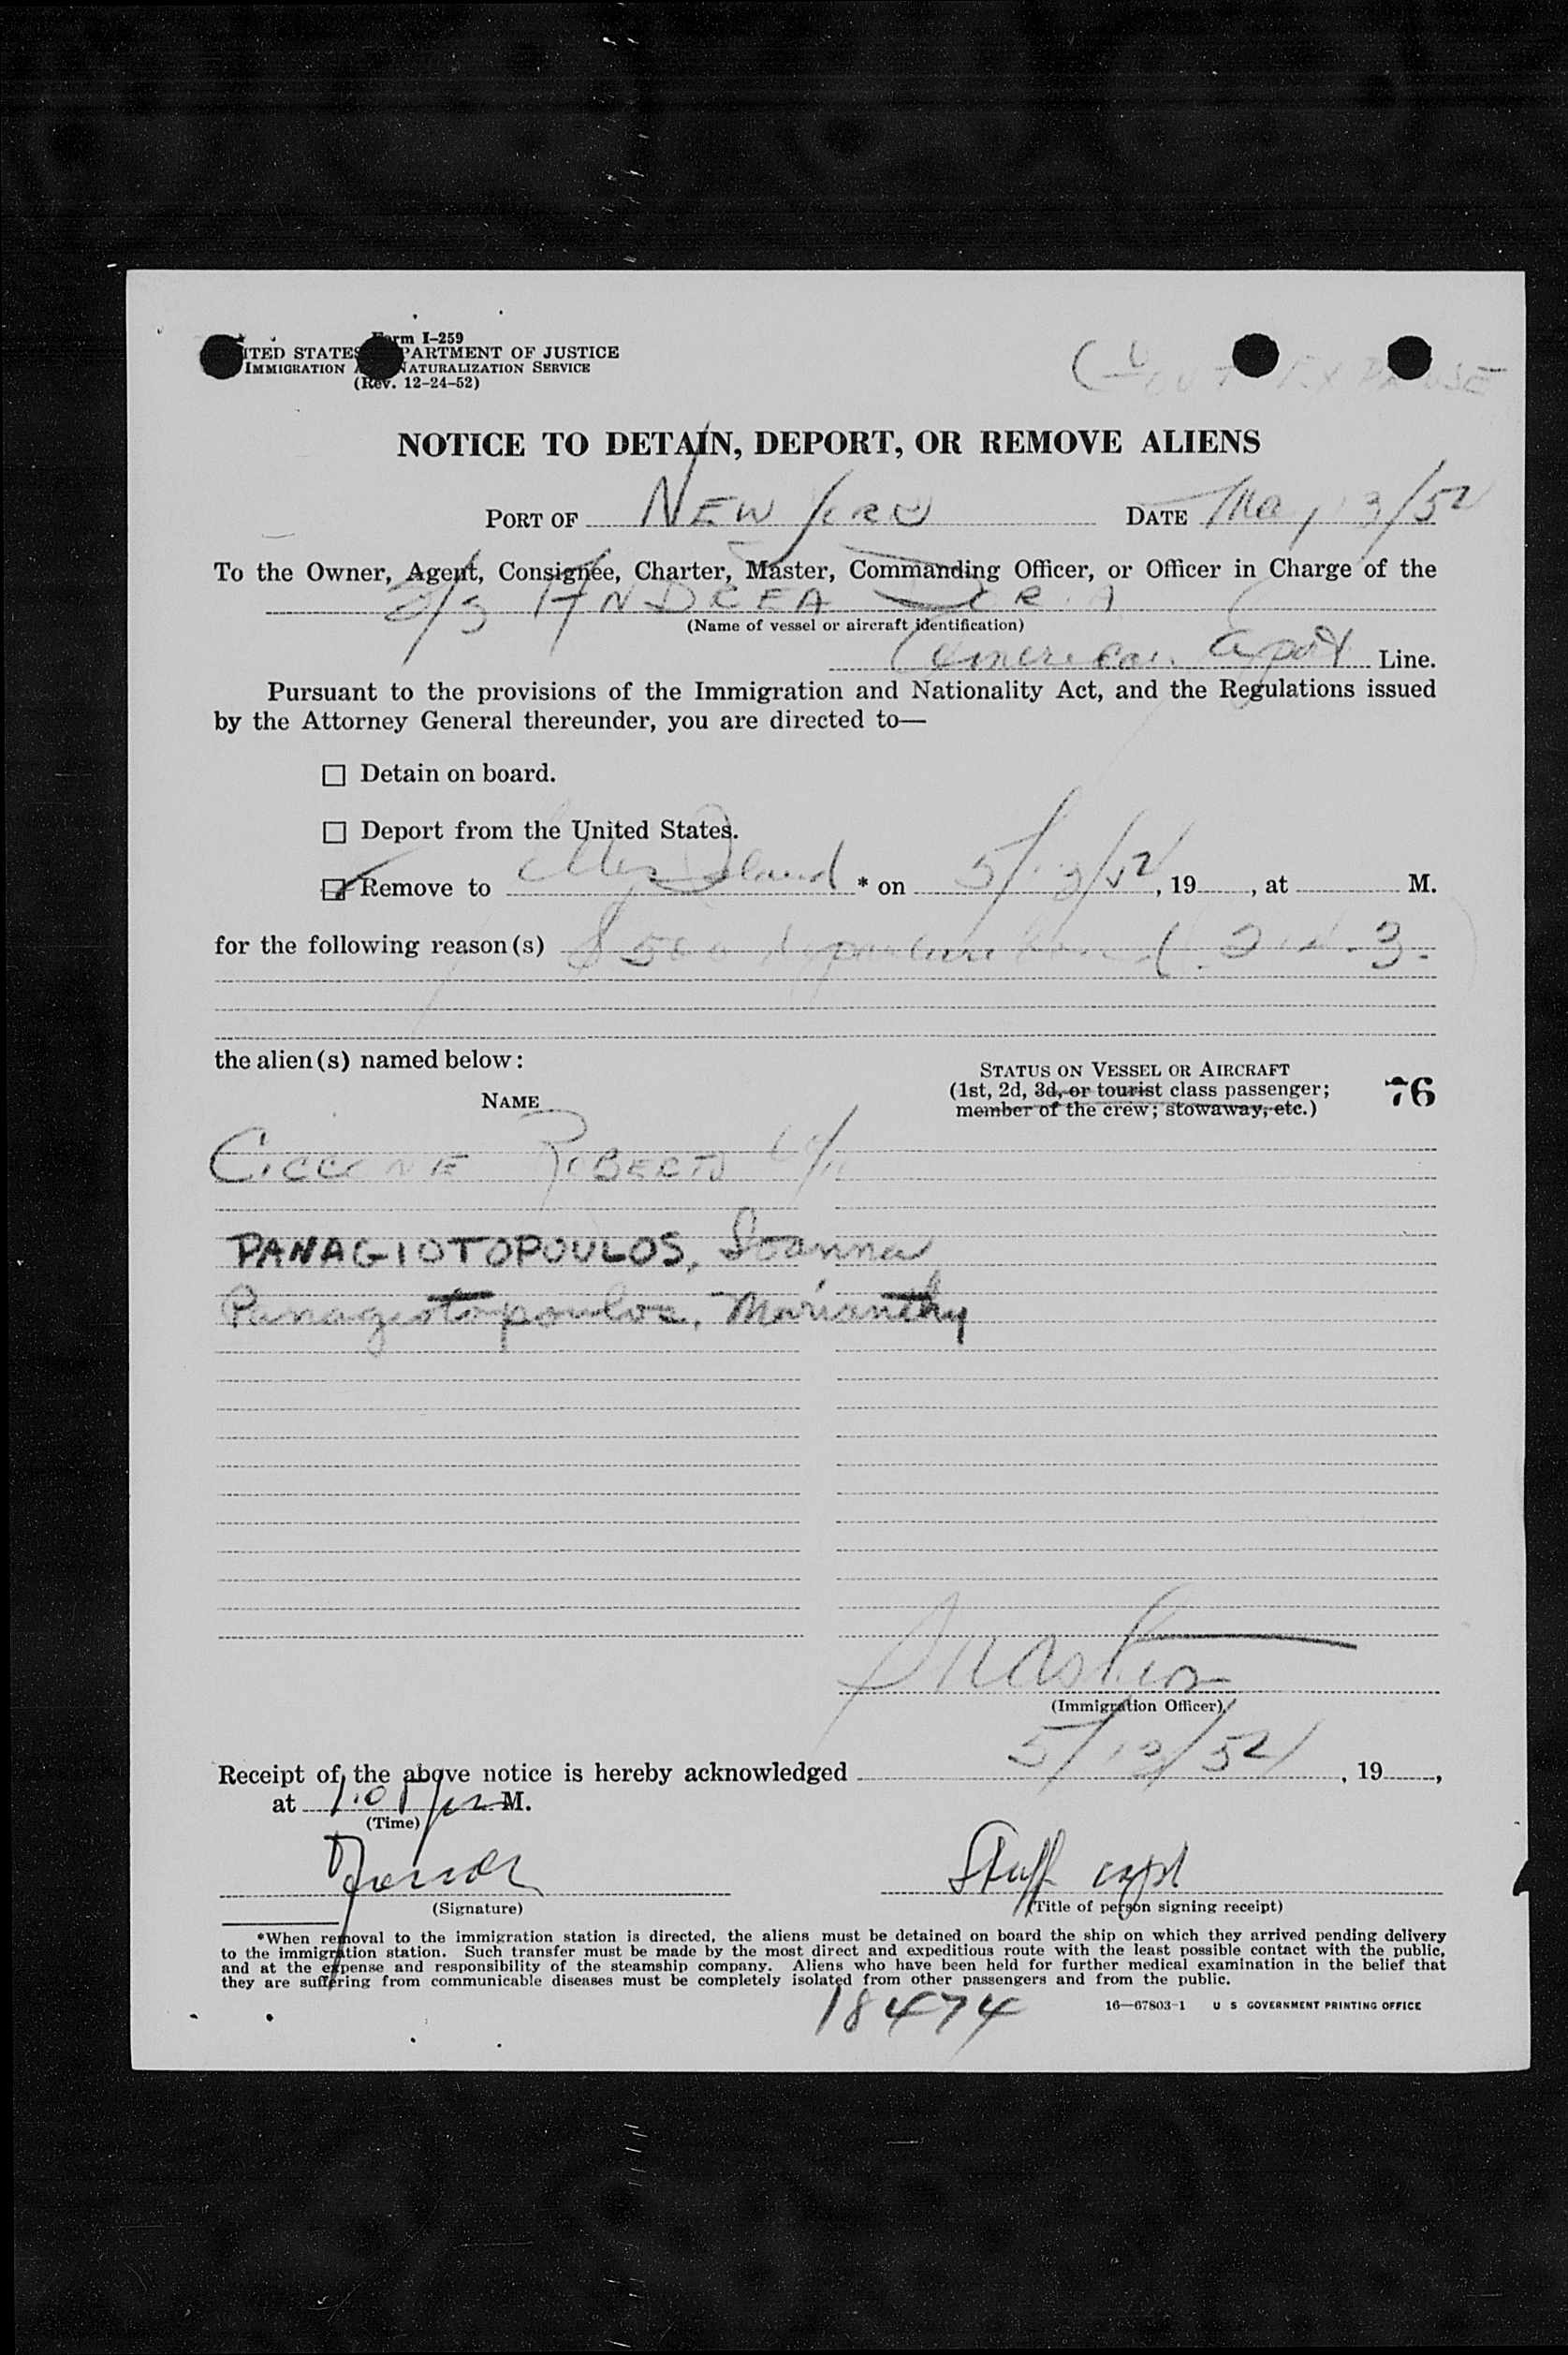 Form I-259
UNITED STATES DEPARTMENT OF JUSTICE
IMMIGRATION AND NATURALIZATION SERVICE
(Rev. 12-24-52)
NOTICE TO DETAIN, DEPORT, OR REMOVE ALIENS
PORT OF NEW YORK DATE May 13/52
To the Owner, Agent, Consignee, Charter, Master, Commanding Officer, or Officer in Charge of the
S/S ANDREA DORIA
(Name of vessel or aircraft identification)
American Export Line.
Pursuant to the provisions of the Immigration and Nationality Act, and the Regulations issued
by the Attorney General thereunder, you are directed to—
☐ Detain on board.
☐ Deport from the United States.
☑ Remove to Ellis Island * on 5/13/52, 19, at M.
for the following reason(s)
the alien(s) named below:
STATUS ON VESSEL OR AIRCRAFT
(1st, 2d, 3d, or tourist class passenger;
member of the crew; stowaway, etc.)
76
NAME
CICCONE ROBERTO
PANAGIOTOPOULOS, Ioanna
Panagiotopoulos, Marianthy
(Immigration Officer)
Receipt of the above notice is hereby acknowledged 5/13/52, 19,
at M.
(Time)
Staff capt
(Signature) (Title of person signing receipt)
*When removal to the immigration station is directed, the aliens must be detained on board the ship on which they arrived pending delivery
to the immigration station. Such transfer must be made by the most direct and expeditious route with the least possible contact with the public,
and at the expense and responsibility of the steamship company. Aliens who have been held for further medical examination in the belief that
they are suffering from communicable diseases must be completely isolated from other passengers and from the public.
18474
16—67803-1 U S GOVERNMENT PRINTING OFFICE